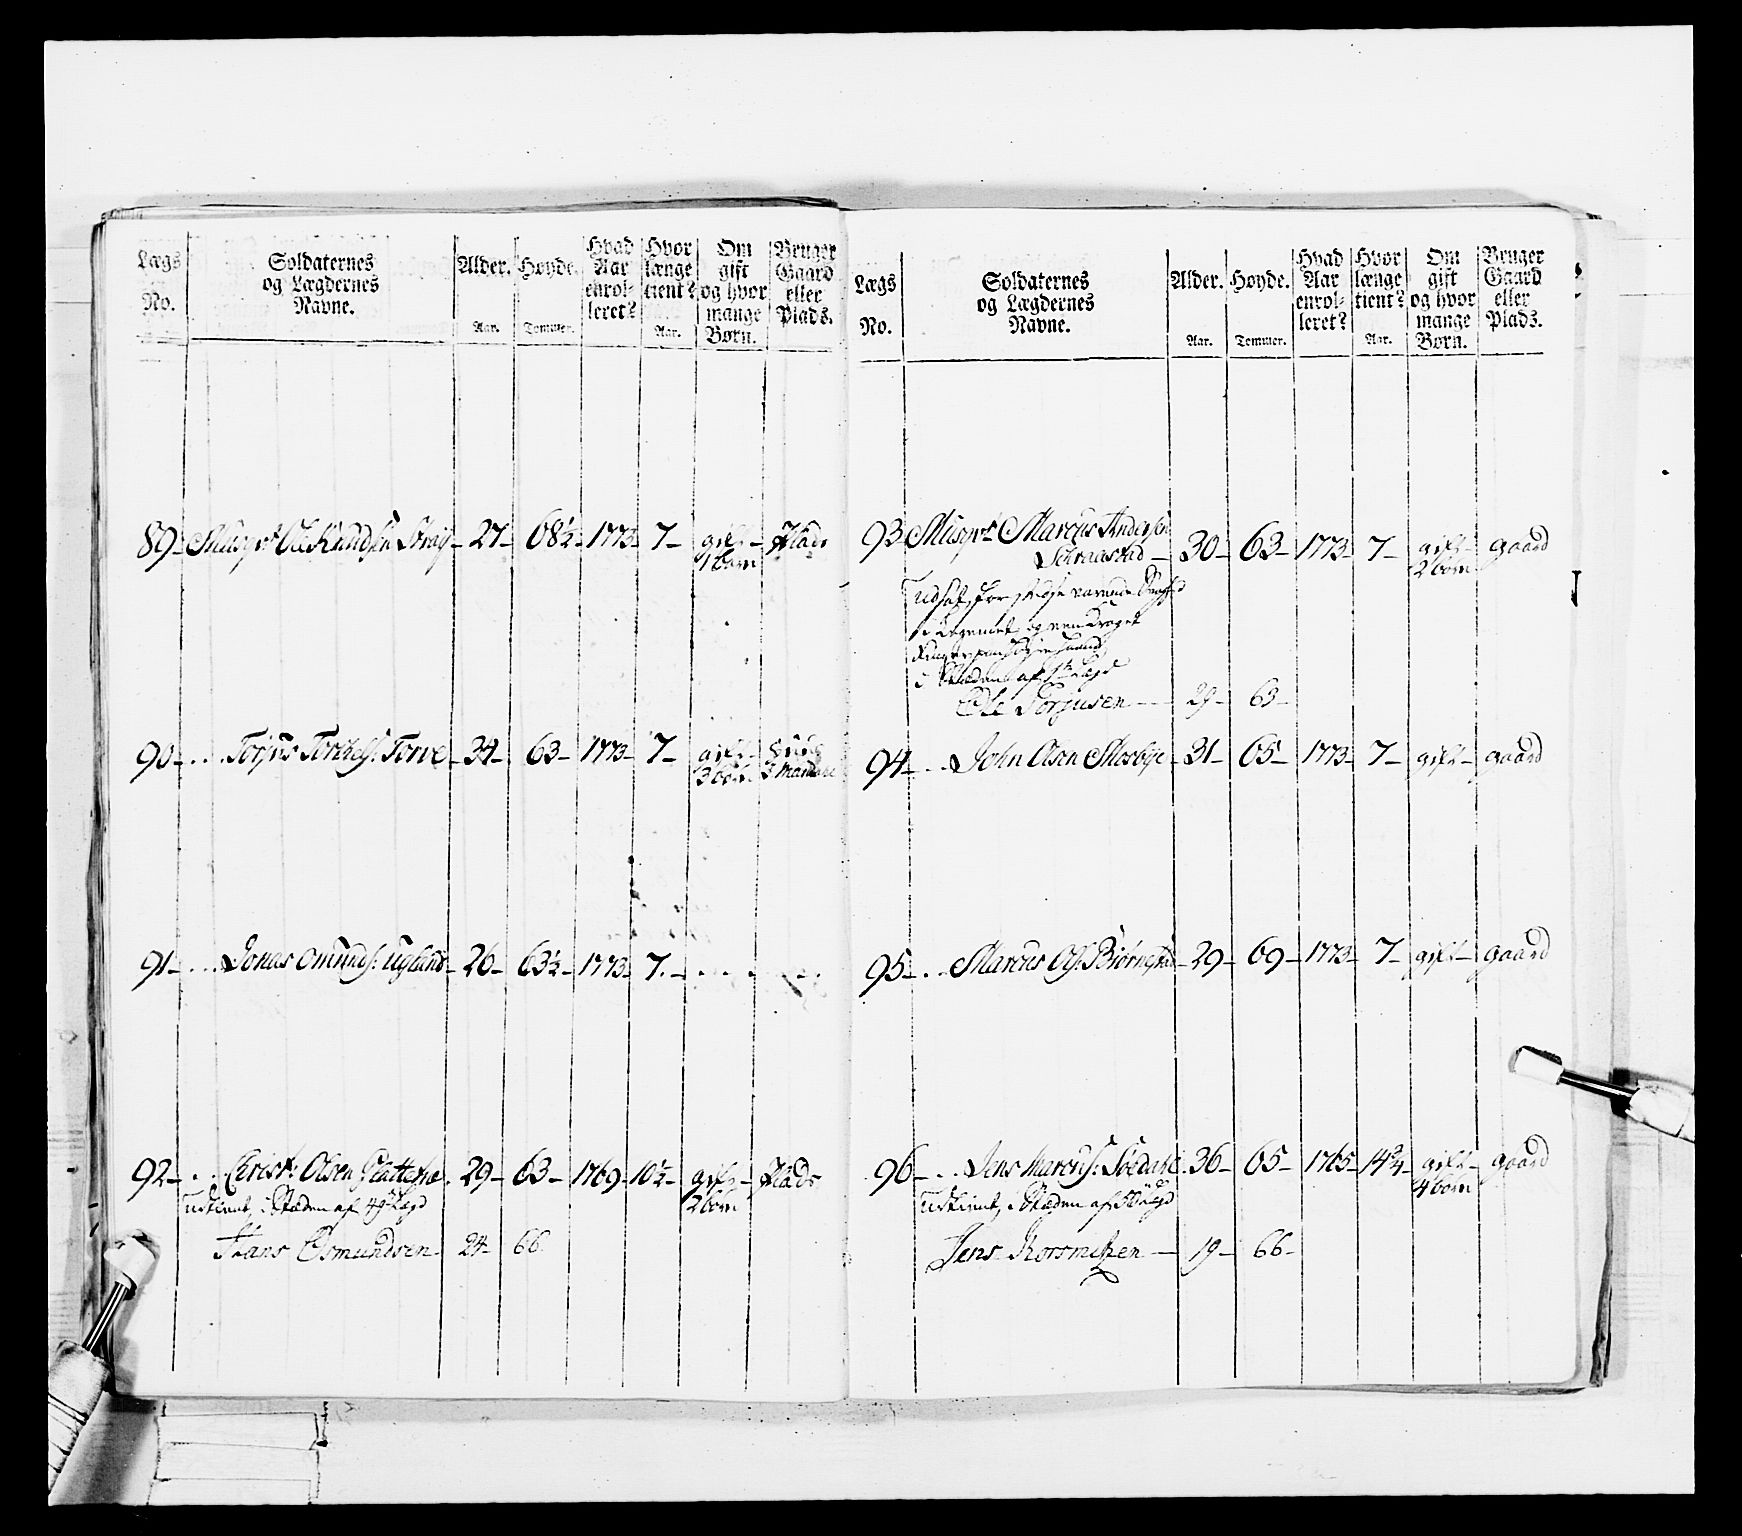 Lægs No. | Soldaternes og Lægdernes Navne. | Alder. Aar. | Høyde. Tommer. | Hvad Aar enrol-leret? | Hvor længe tient? Aar. | Om gift og hvor mange Børn. | Bruger Gaard eller Plads.
89 - Musqvt Ole Knudsen Straÿ - 27 - 68½ - 1773 - 7 - gift - Plads
1 barn
90 - . . Torjus Torkels: Torve - 34 - 63 - 1773 - 7 - gift -
3 børn 3 Maaneder
91 - . . . Jonas Omunds: Ugland - 26 - 63½ - 1773 - 7. - . . . .
92 - . . Christ: Olsen - 29 - 63 - 1769 - 10½ - gift - Plads
Udtient, i Stæden af 49 Lægd 2 børn
Hans Osmundsen - 24 - 66
Lægs No. | Soldaternes og Lægdernes Navne. | Alder. Aar. | Høyde. Tommer. | Hvad Aar enrol-leret? | Hvor længe tient? Aar. | Om gift og hvor mange Børn. | Bruger Gaard eller Plads.
93 Musqvt Marcus Andersen
Schraastad - 30 - 63 - 1773 - 7 - gift - gaard
2 børn
for
og
i Stæden af Lægd
Ole Torjusen - - 29 - 63 -
94 - . . John Olsen Mosbye - 31 - 65 - 1773 - 7 - gift - gaard
95 - . . Marcus Ols: Biørnstad - 29 - 69 - 1773 - 7 - gift - gaard
96 - . . Jens Marcus: - 36 - 65 - 1765 - 14¾ - gift - gaard
Udtient, i Stæden af Lægd 4 børn
Jens - 19 - 66 -